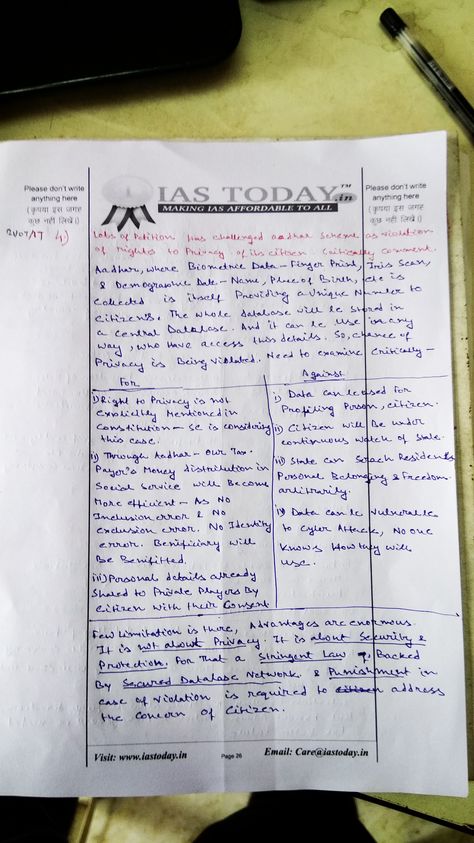 Please don't write
anything here
(कृपया इस जगह
कुछ नहीं लिखें।)
IAS TODAY.in
TM
MAKING IAS AFFORDABLE TO ALL
Please don't write
anything here
(कृपया इस जगह
कुछ नहीं लिखें।)
Lots of Petition has challenged aadhar scheme as violation
of rights to Privacy of its citizen. Critically comment.
Aadhar, where Biometric Data - Finger Print, Iris Scan,
& Demographic Data - Name, Place of Birth, etc is
collected is itself Providing a Unique Number to
citizens. The whole database will be stored in
a central Database. And it can be use in any
way, who have access this details. So, chance of
Privacy is Being violated. Need to examine critically -
For
i) Right to Privacy is not
Explicitly Mentioned in
Constitution - SC is considering
this case.
ii) Through Aadhar - our Tax
Payer's Money distribution in
Social Service will Become
More efficient - As No
Inclusion error & No
exclusion error. No Identity
error. Benificiary will
Be Benifitted.
iii) Personal details already
Shared to Private Players By
Citizen with their Consent
Against
i) Data can be used for
Profiling Person, citizen.
ii) Citizen will Be under
continuous watch of state.
iii) State can Serach Residents
Personal Belonging & Freedom
arbitrarily.
iv) Data can be vulnerable
to cyber Attack, No one
Knows How they will
use.
Few Limitation is there, Advantages are enormous.
It is not about Privacy. It is about Security &
Protection. For that a Stringent Law, Backed
By Secured Database Network & Punishment in
case of violation is required to address
the concern of Citizen.
Visit: www.iastoday.in
Page 26
Email: Care@iastoday.in